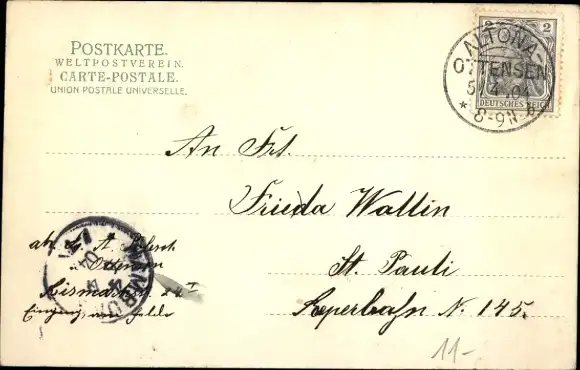 POSTKARTE.
WELTPOSTVEREIN.
CARTE-POSTALE.
UNION POSTALE UNIVERSELLE.
2
DEUTSCHES REICH
ALTONA-
OTTENSEN
5 4 04
* 8-9N
An Frl.
Frieda Wallin
St. Pauli
Reperbahn N. 145.
ab. A.
Ottensen
Eingang
HAMBURG
11-